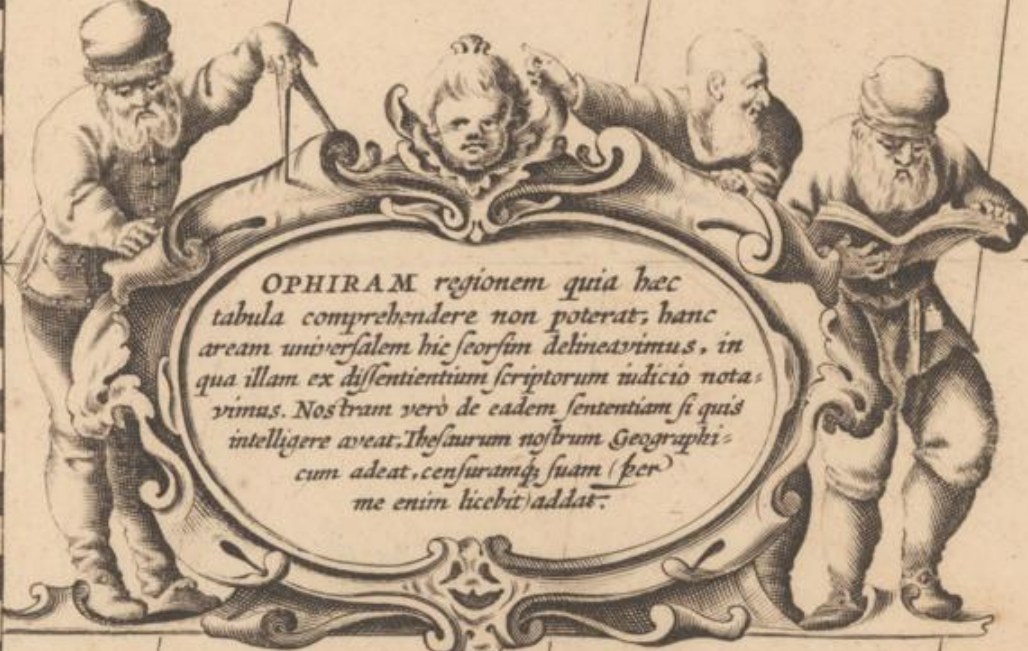 OPHIRAM regionem quia hæc
tabula comprehendere non poterat, hanc
aream universalem hic seorsim delineavimus, in
qua illam ex dissentientium scriptorum iudicio nota-
vimus. Nostram verò de eadem sententiam si quis
intelligere aveat, Thesaurum nostrum Geographi-
cum adeat, censuramq; suam (per
me enim licebit) addat.